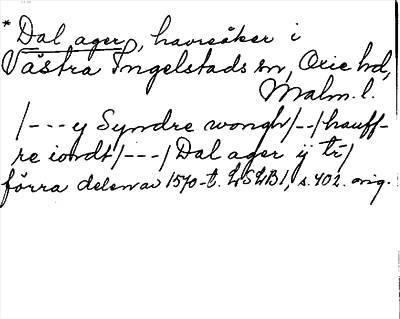 * Dal ager, havreåker i
Västra Ingelstads sn, Oxie hd,
Malm. l.
/--- y Syndre wongh/--/hauff-
re iordt/---/Dal ager ÿ tr/
förra delen av 1570-t. LSLB1, s. 402. orig.